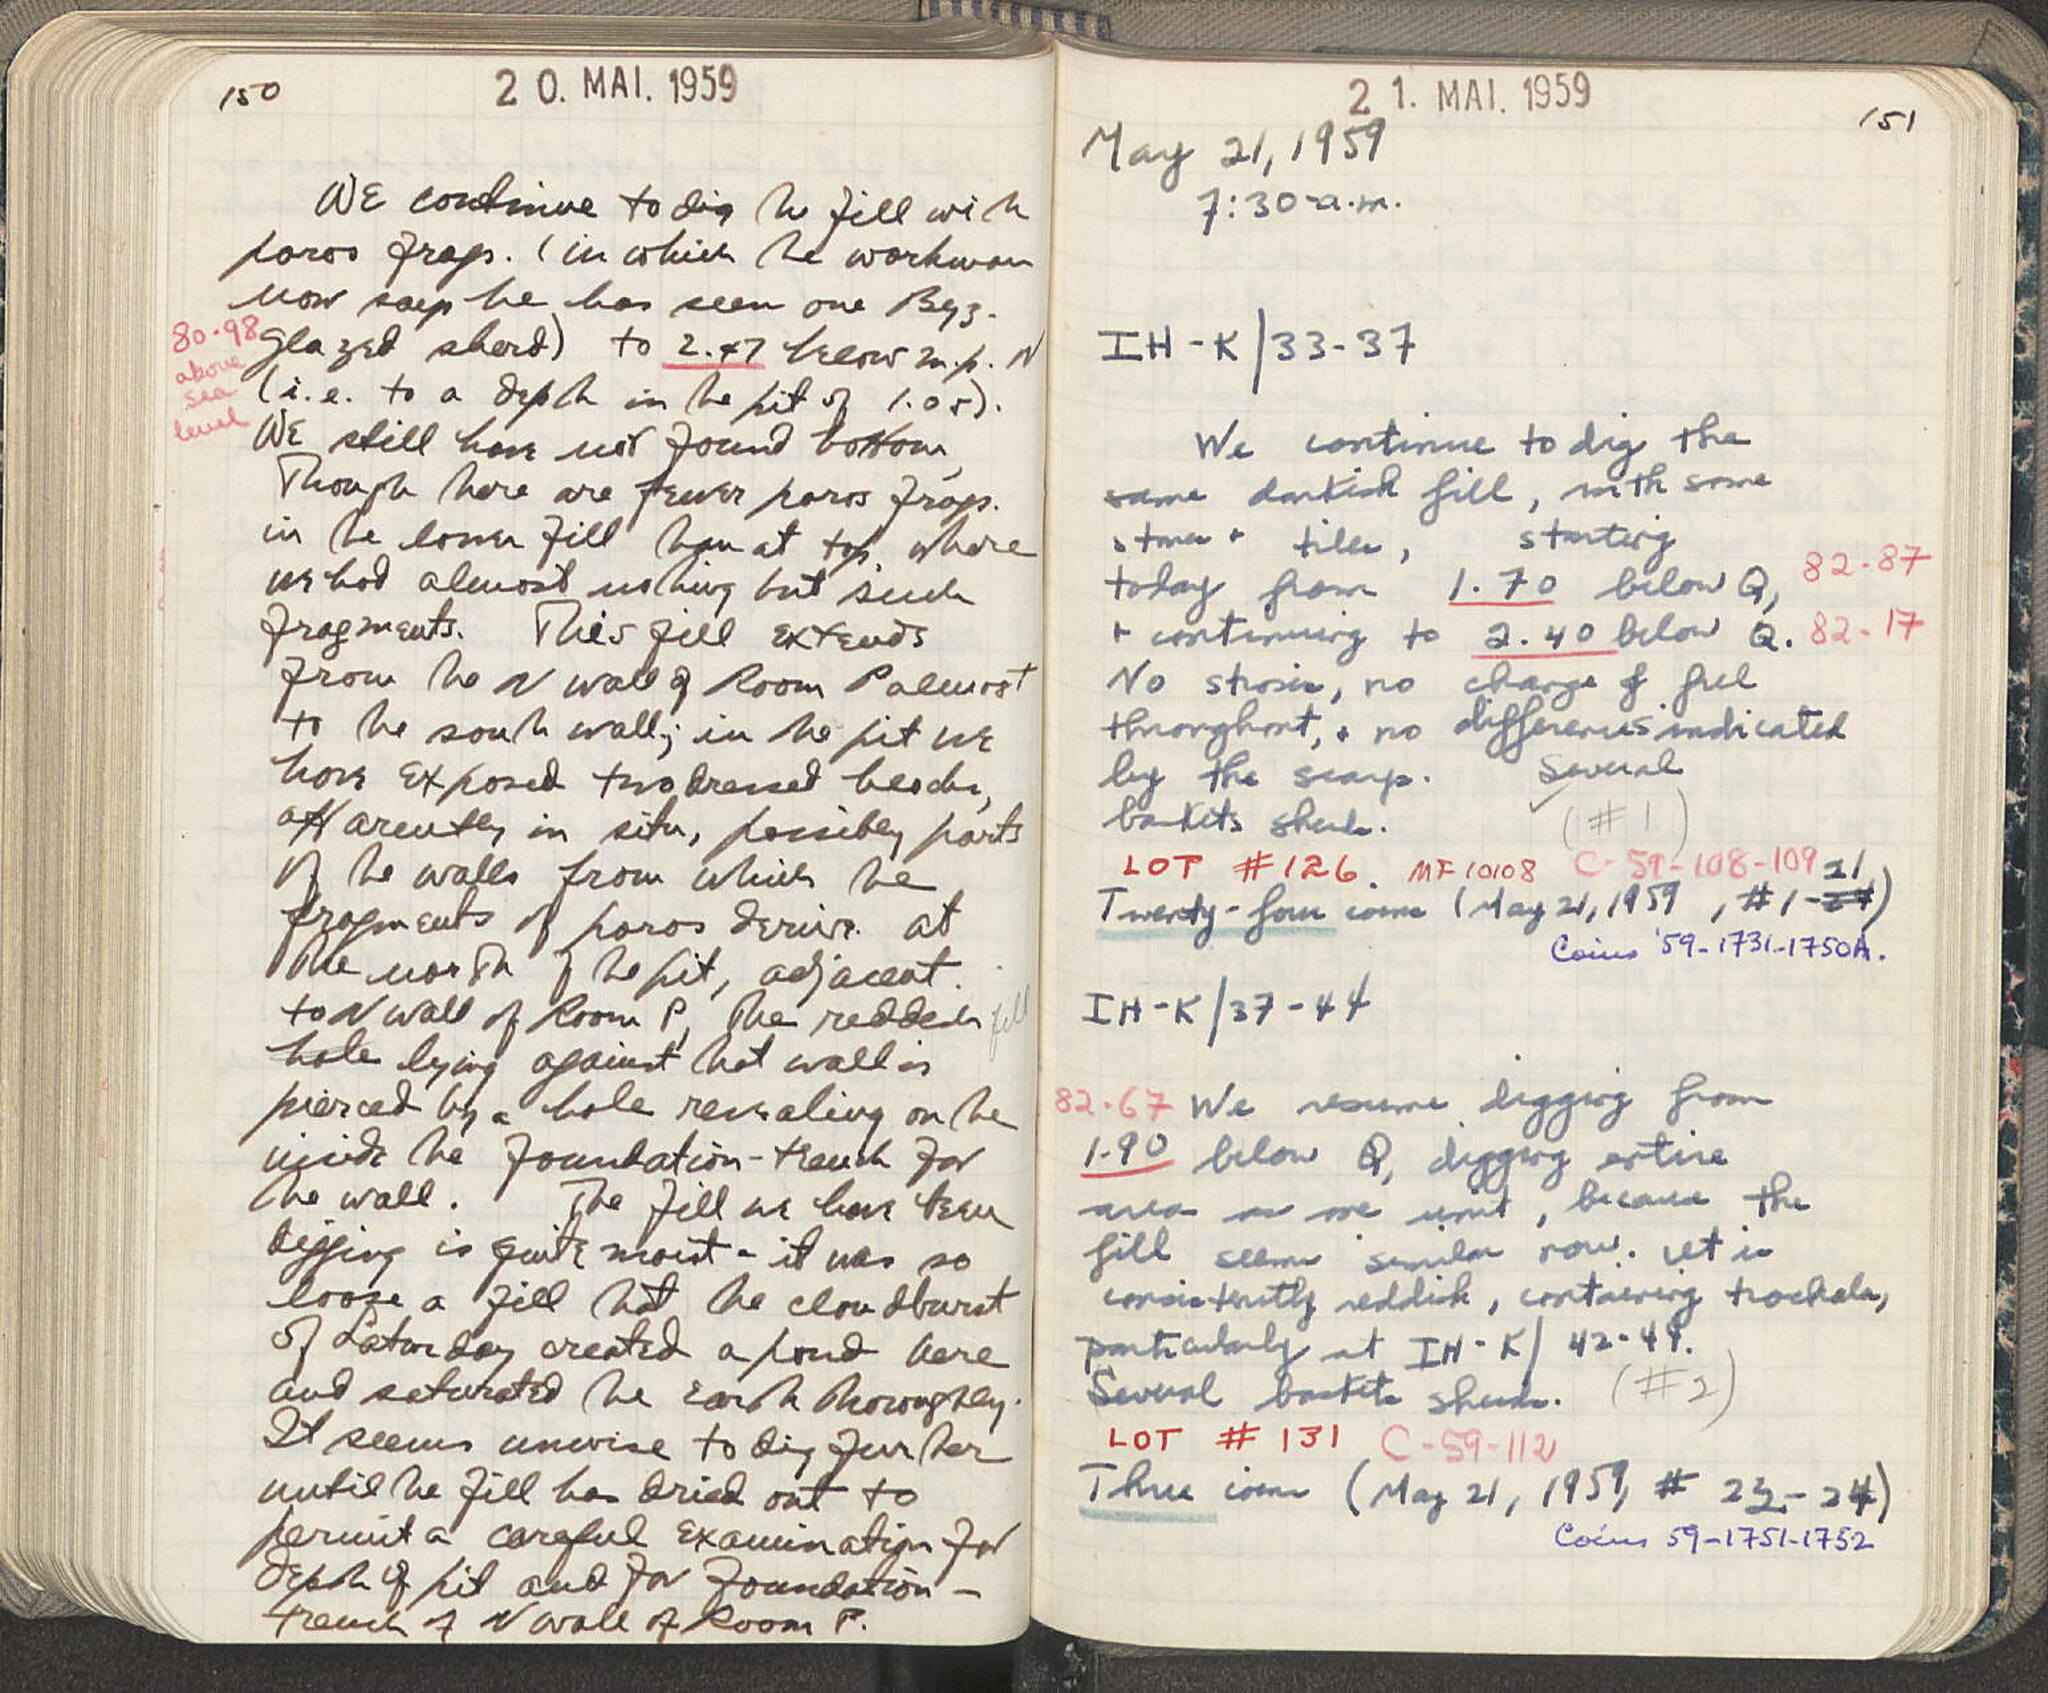 150
20. MAI. 1959
WE continue to dig the fill with
poros frags. (in which the workman
now says he has seen one Byz.
glazed sherd) to 2.47 below m.p. N
80.98
above
sea
level
(i.e. to a depth in the pit of 1.05).
WE still have not found bottom,
Though there are fewer poros frags.
in the lower fill than at top, where
we had almost nothing but such
fragments. This fill extends
from the N wall of Room P almost
to the south wall; in the pit we
have exposed two dressed blocks,
apparently in situ, possibly parts
of the walls from which the
fragments of poros derive. at
the north of the pit, adjacent
to N wall of Room P, the reddish fill
hole lying against that wall is
pierced by a hole revealing on the
inside the foundation-trench for
the wall. The fill we have been
digging is quite moist - it was so
loose a fill that the cloudburst
of Saturday created a pond here
and saturated the earth thoroughly.
It seems unwise to dig further
until the fill has dried out to
permit a careful examination for
depth of pit and for foundation-
trench of N wall of Room P.
21. MAI. 1959
151
May 21, 1959
7:30 a.m.
IH-K/33-37
We continue to dig the
same darkish fill, with some
stones + tiles, starting
today from 1.70 below Q, 82.87
+ continuing to 2.40 below Q. 82.17
No strosis, no change of fill
throughout, + no differences indicated
by the scarp. Several
baskets sherds. (#1)
LOT #126. MF 10108 C-59-108-109
Twenty-four coins (May 21, 1959, #1-24 21)
Coins '59-1731-1750A.
IH-K/37-44
82.67 We resume digging from
1.90 below Q, digging entire
area as one unit, because the
fill seems similar now. It is
consistently reddish, containing trochala,
particularly at IH-K/42-44.
Several baskets sherds. (#2)
LOT #131 C-59-112
Three coins (May 21, 1959, # 22-24)
Coins 59-1751-1752